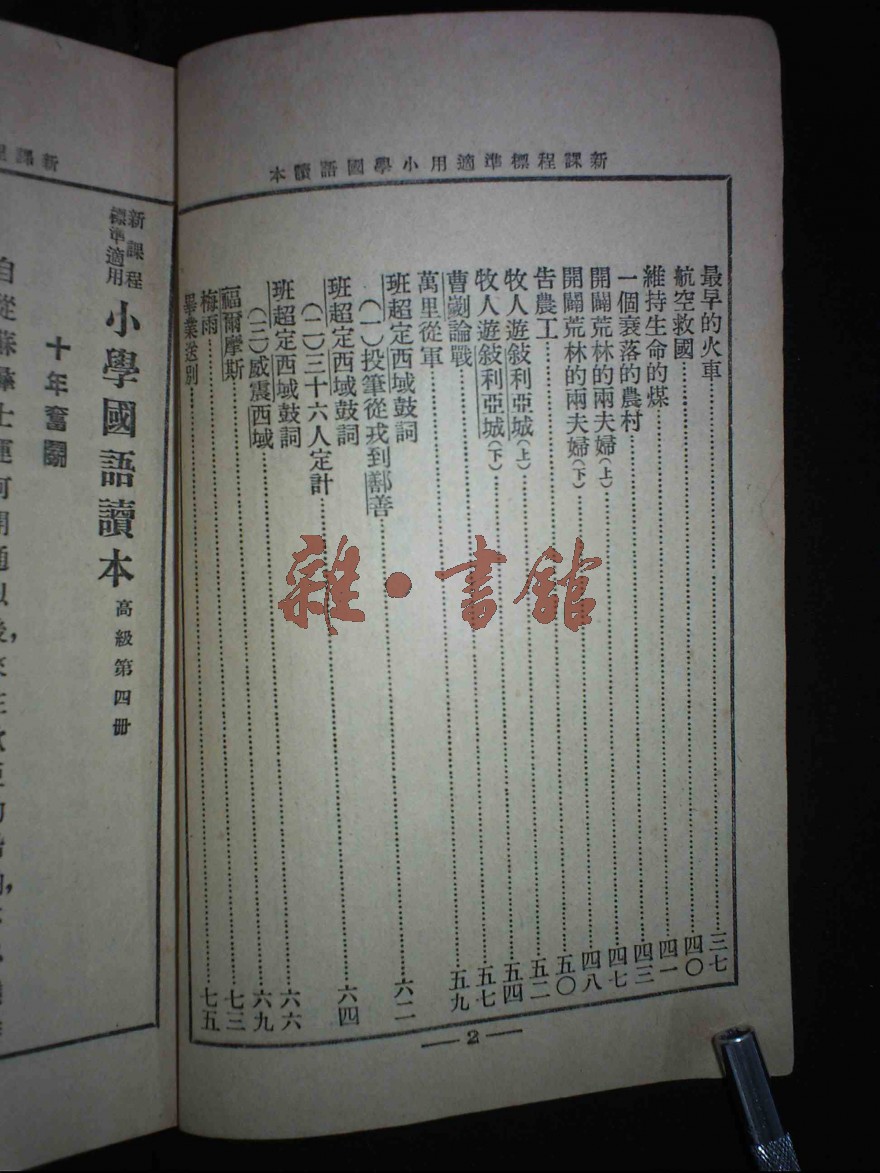 新課程標準適用小學國語讀本
最早的火車……三七
航空救國……四〇
維持生命的煤……四一
一個衰落的農村……四三
開闢荒林的兩夫婦(上)……四七
開闢荒林的兩夫婦(下)……四八
告農工……五〇
牧人遊敍利亞城(上)……五二
牧人遊敍利亞城(下)……五四
曹劌論戰……五七
萬里從軍……五九
班超定西域鼓詞
(一)投筆從戎到鄯善……六二
班超定西域鼓詞
(二)三十六人定計……六四
班超定西域鼓詞
(三)威震西域……六六
福爾摩斯……六九
梅雨……七三
畢業送別……七五
— 2 —
雜·書館
新課程
新課程標準適用 小學國語讀本 高級第四册
十年奮鬭
自從蘇彝士運河開通以後,